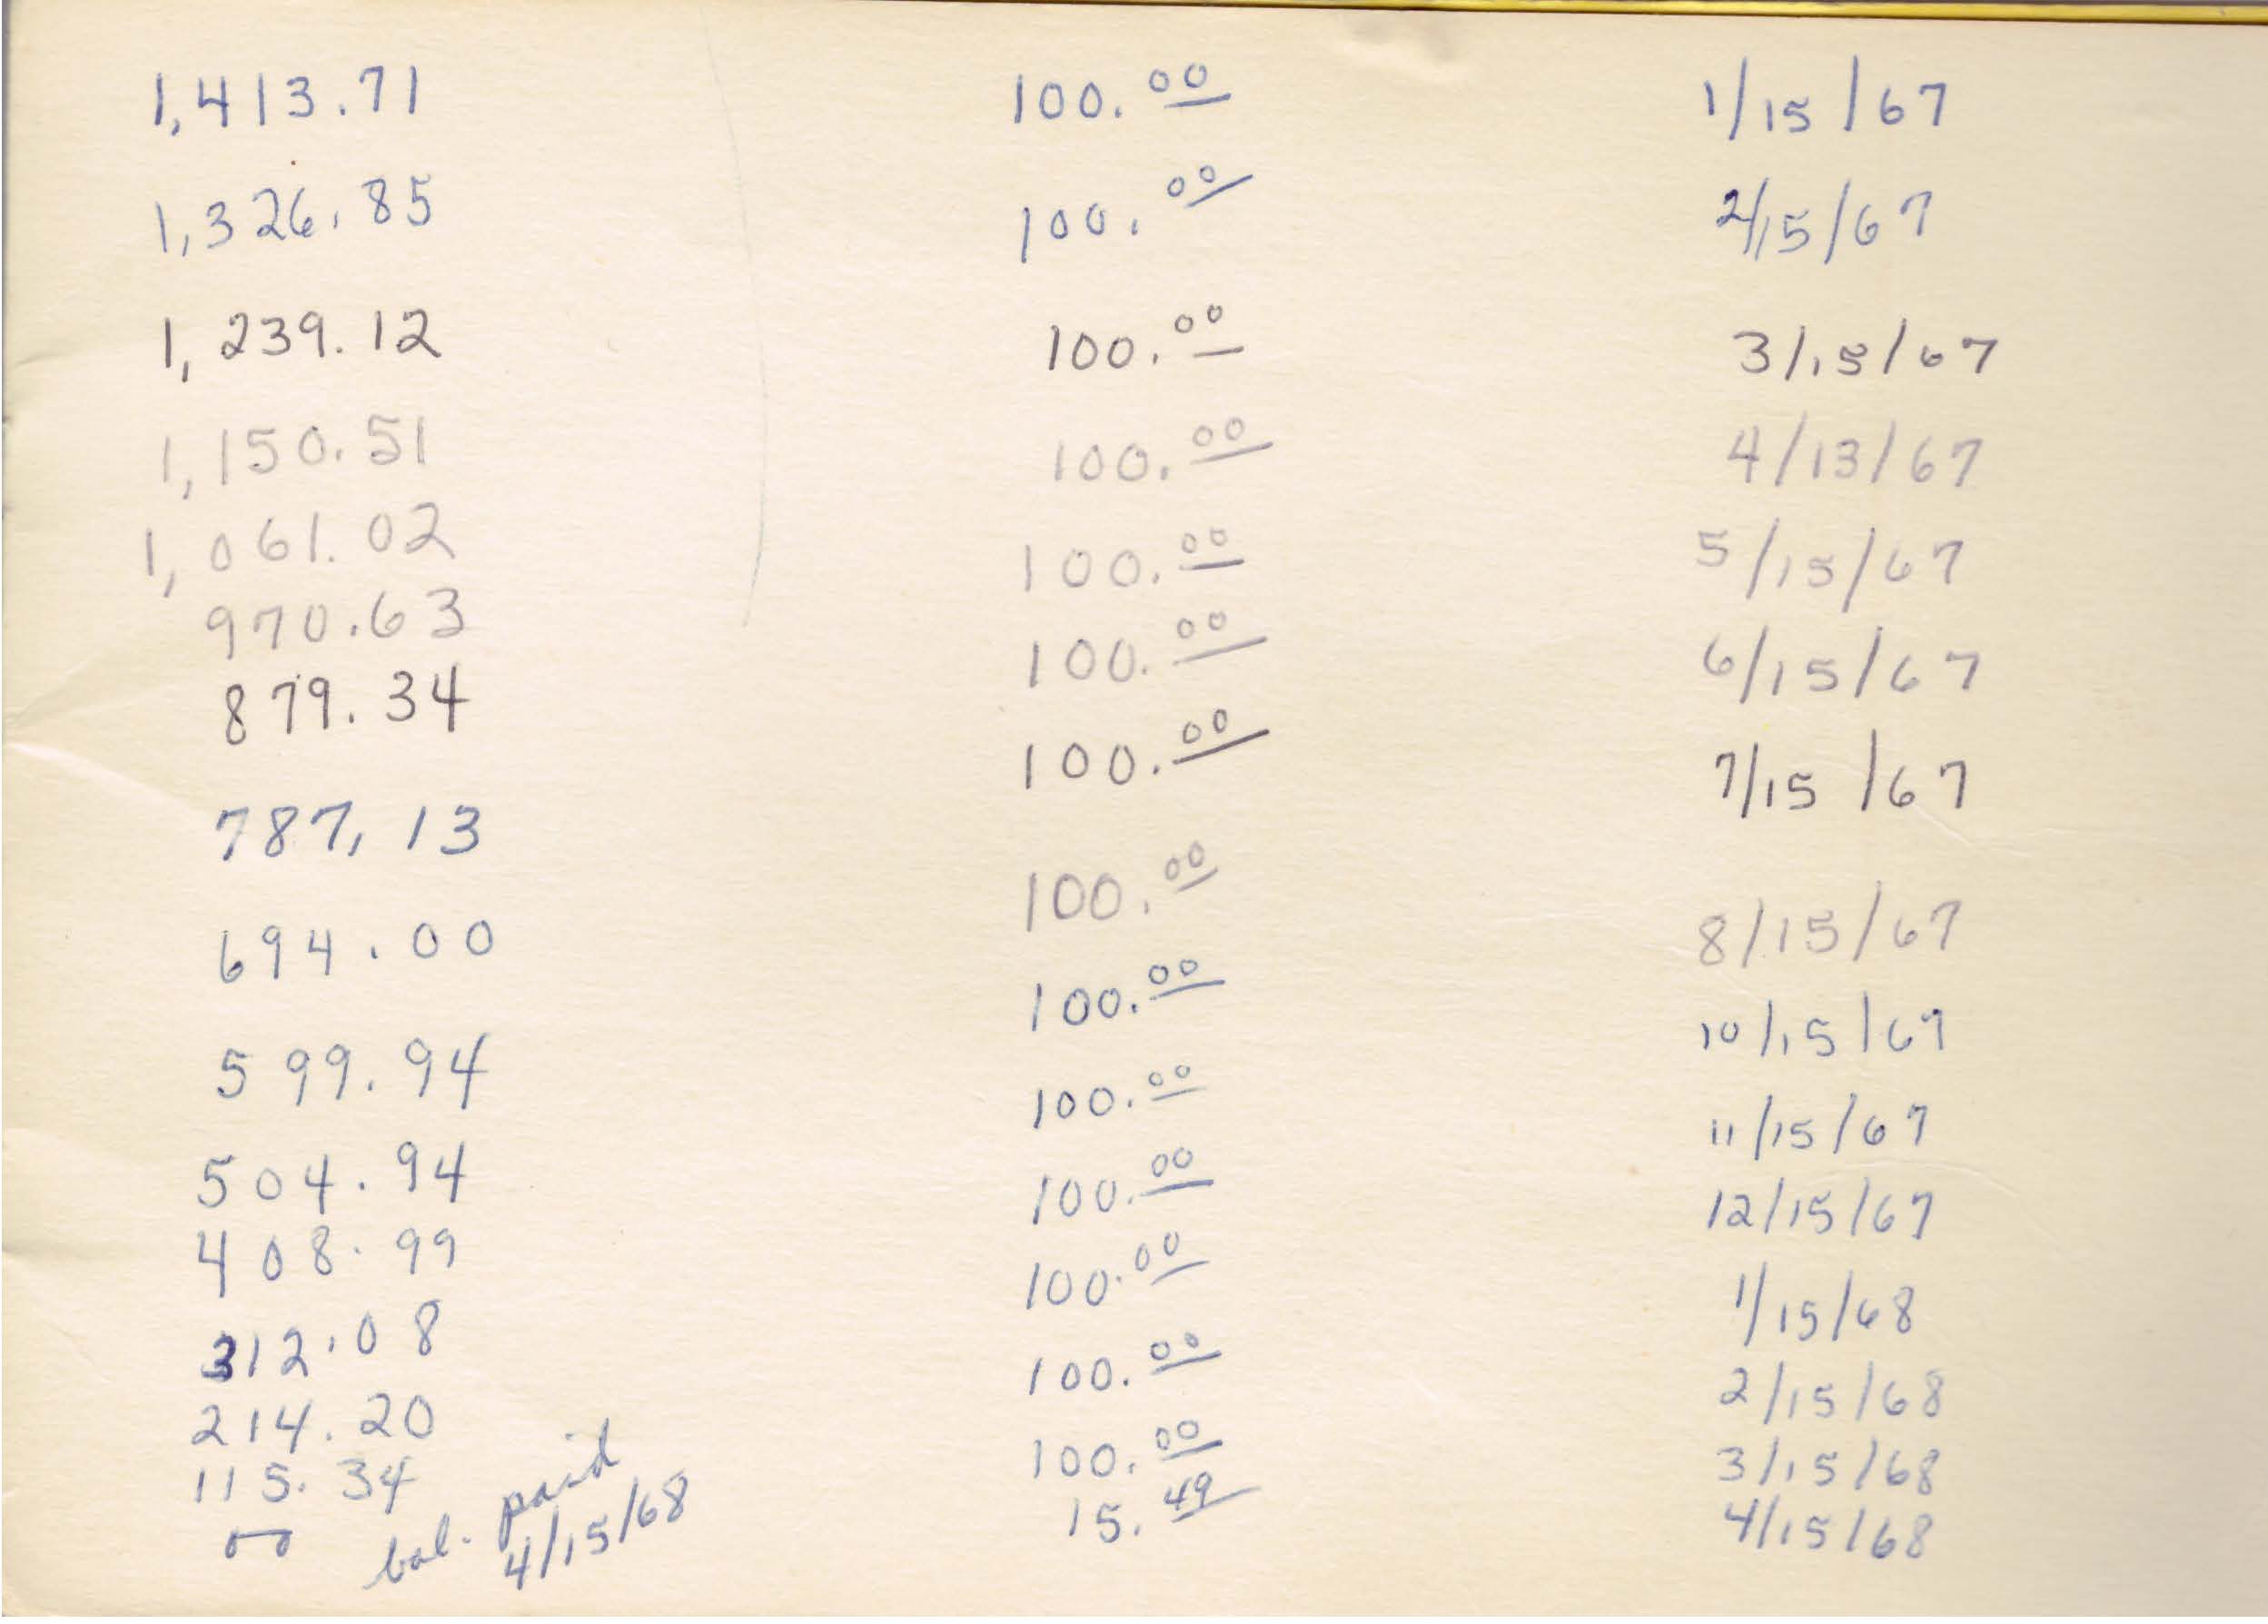 1,413.71 100.00 1/15/67
1,326.85 100.00 2/15/67
1,239.12 100.00 3/15/67
1,150.51 100.00 4/13/67
1,061.02 100.00 5/15/67
970.63 100.00 6/15/67
879.34 100.00 7/15/67
787,13 100.00 8/15/67
694.00 100.00 10/15/67
599.94 100.00 11/15/67
504.94 100.00 12/15/67
408.99 100.00 1/15/68
312.08 100.00 2/15/68
214.20 100.00 3/15/68
115.34 15.49 4/15/68
00 bal. paid
4/15/68